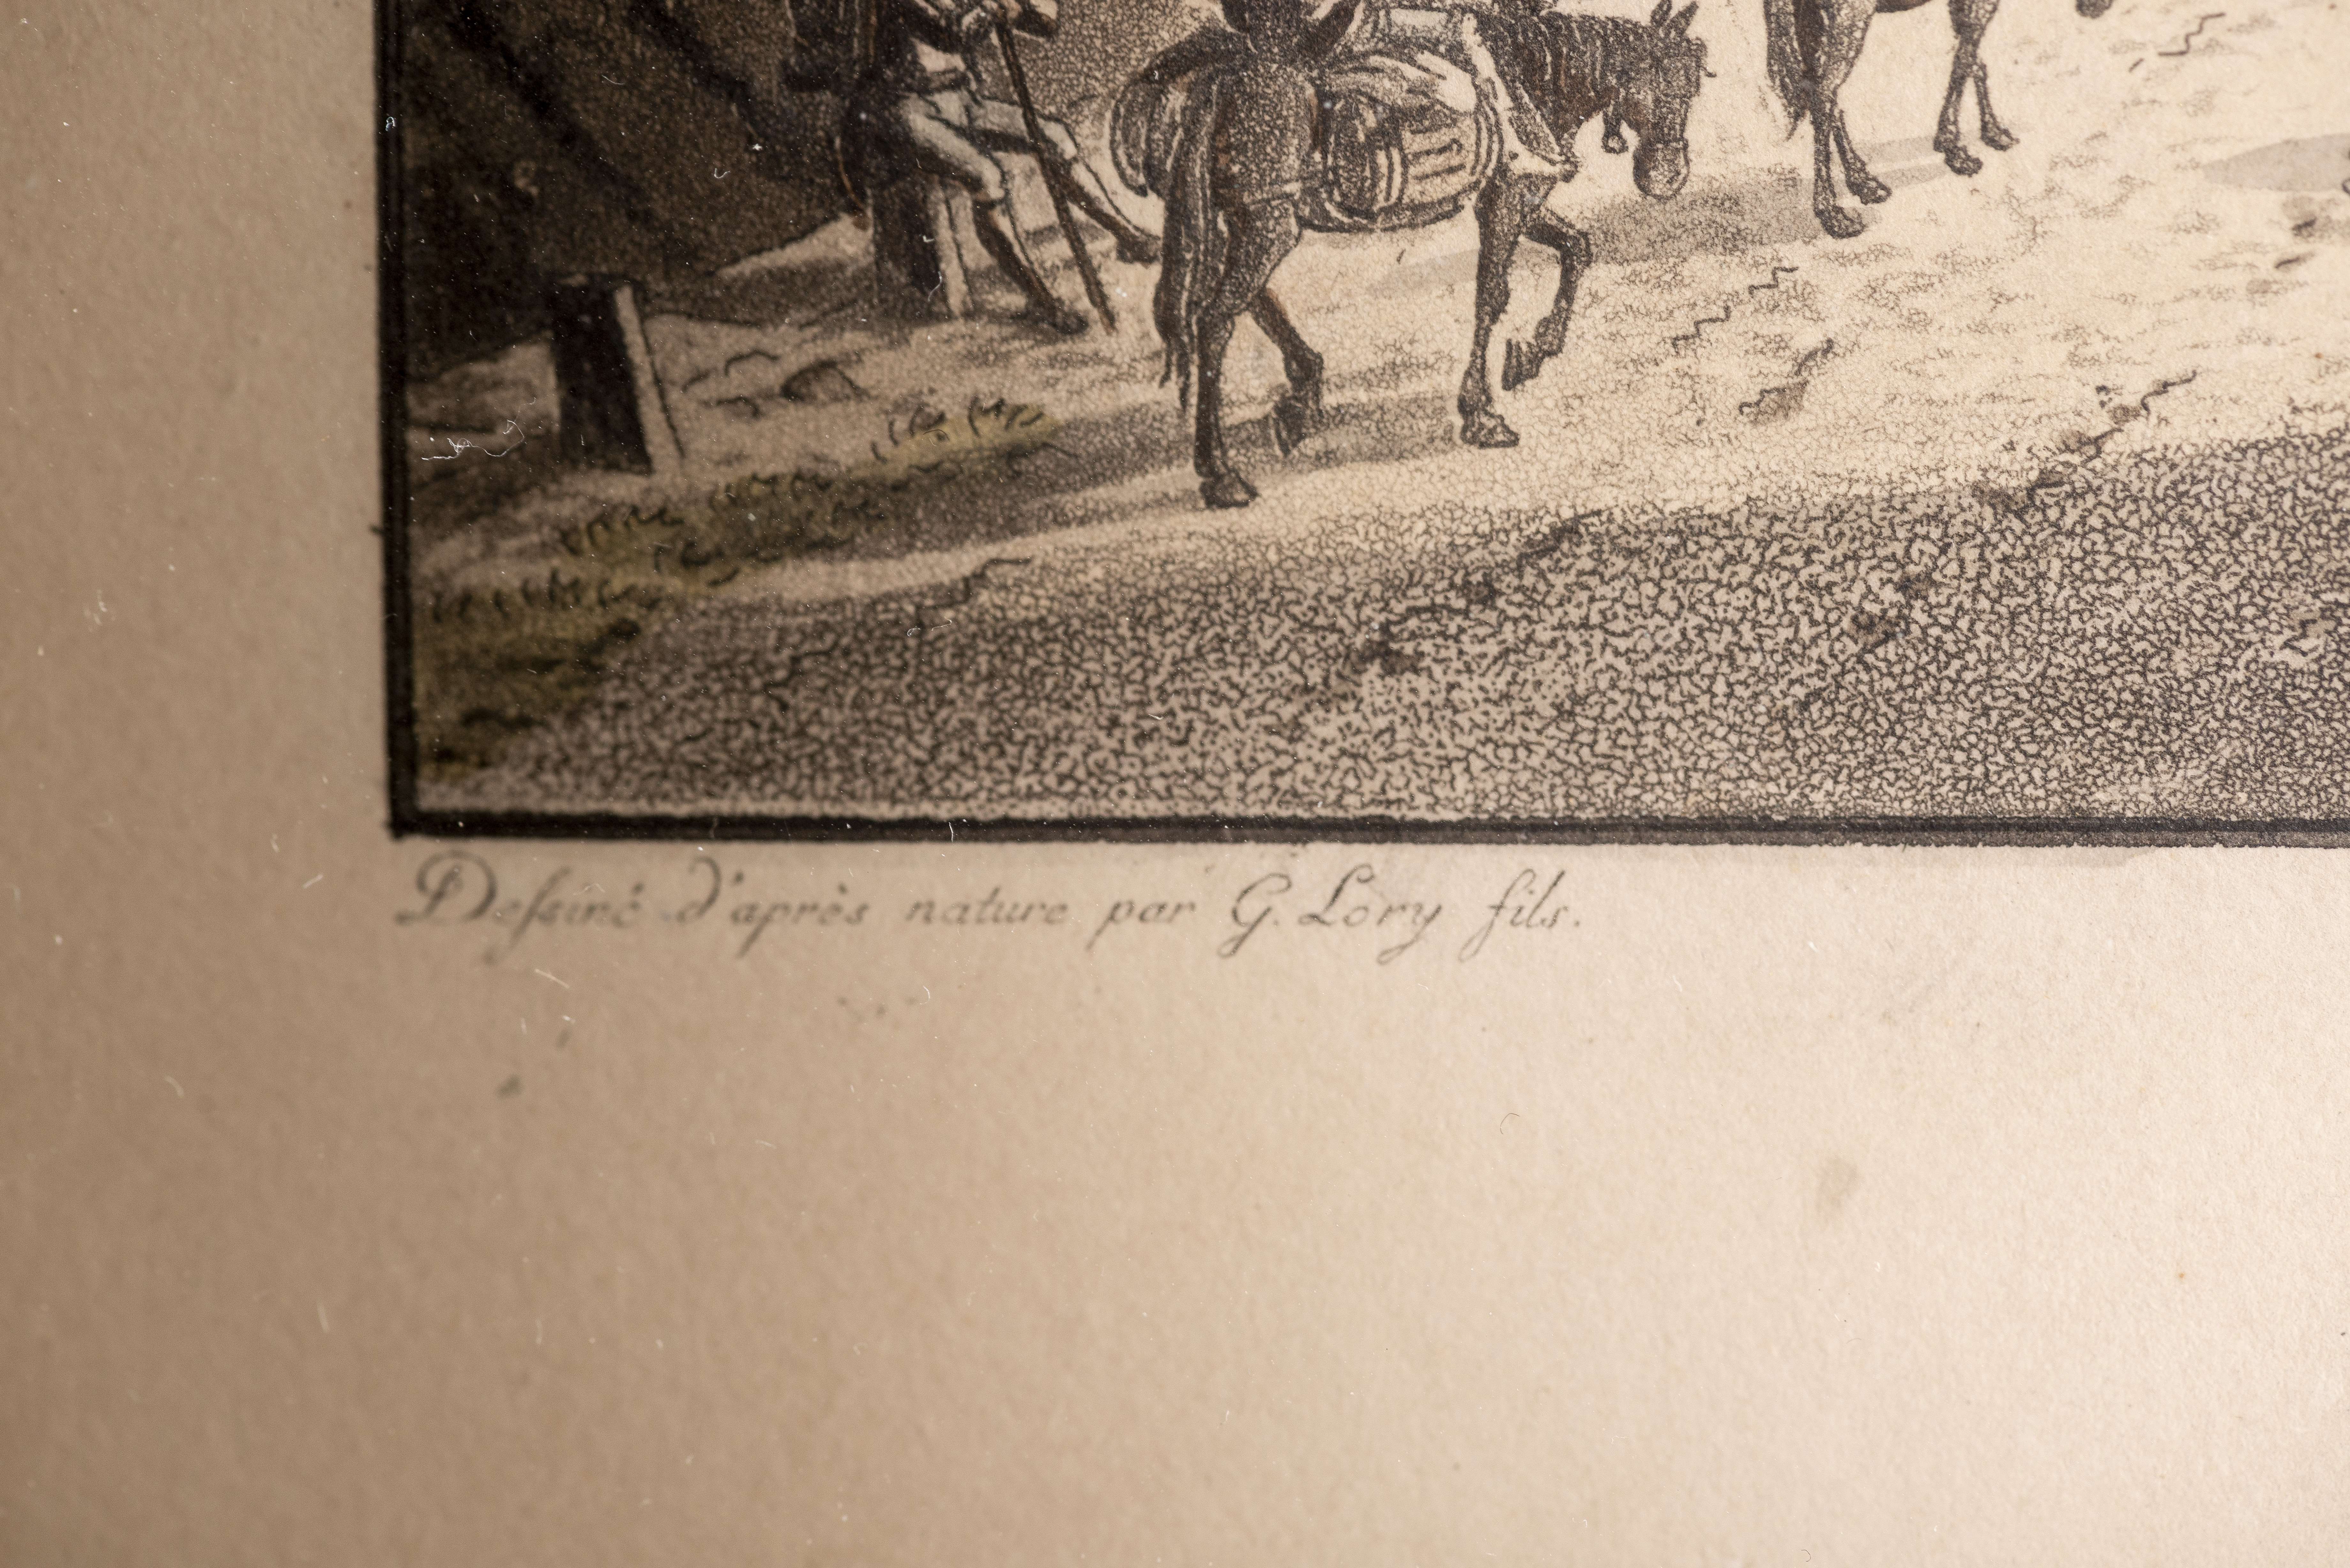 Deſsiné d'après nature par G. Lory fils.